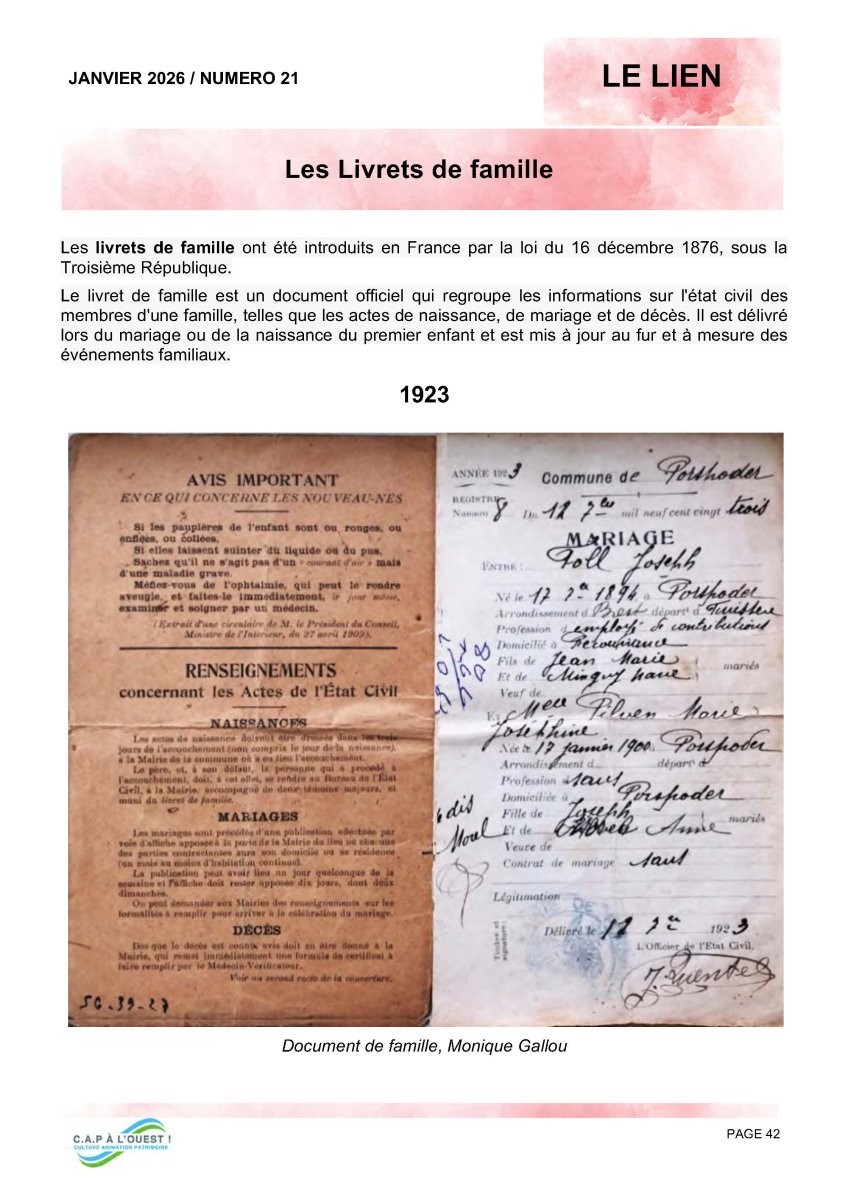 JANVIER 2026 / NUMERO 21
LE LIEN
Les Livrets de famille
Les livrets de famille ont été introduits en France par la loi du 16 décembre 1876, sous la
Troisième République.
Le livret de famille est un document officiel qui regroupe les informations sur l'état civil des
membres d'une famille, telles que les actes de naissance, de mariage et de décès. Il est délivré
lors du mariage ou de la naissance du premier enfant et est mis à jour au fur et à mesure des
événements familiaux.
1923
AVIS IMPORTANT
EN CE QUI CONCERNE LES NOUVEAU-NÉS
Si les paupières de l'enfant sont ou rouges, ou
enflées, ou collées,
Si elles laissent suinter du liquide ou du pus,
Sachez qu'il ne s'agit pas d'un « courant d'air » mais
d'une maladie grave.
Méfiez-vous de l'ophtalmie, qui peut le rendre
aveugle, et faites-le immédiatement, le jour même,
examiner et soigner par un médecin.
(Extrait d'une circulaire de M. le Président du Conseil,
Ministre de l'Intérieur, du 27 avril 1909).
RENSEIGNEMENTS
concernant les Actes de l'État Civil
NAISSANCES
Les actes de naissance doivent être dressés dans les trois
jours de l'accouchement (non compris le jour de la naissance),
à la Mairie de la commune où a eu lieu l'accouchement.
Le père, et, à son défaut, la personne qui a procédé à
l'accouchement, doit, à cet effet, se rendre au Bureau de l'État
Civil, à la Mairie, accompagné de deux témoins majeurs, et
muni du livret de famille.
MARIAGES
Les mariages sont précédés d'une publication effectuée par
voie d'affiche apposée à la porte de la Mairie du lieu où chacune
des parties contractantes aura son domicile ou sa résidence
(un mois au moins d'habitation continue).
La publication peut avoir lieu un jour quelconque de la
semaine et l'affiche doit rester apposée dix jours, dont deux
dimanches.
On peut demander aux Mairies des renseignements sur les
formalités à remplir pour arriver à la célébration du mariage.
DÉCÈS
Dès que le décès est connu avis doit en être donné à la
Mairie, qui remet immédiatement une formule de certificat à
faire remplir par le Médecin-Vérificateur.
Voir au second recto de la couverture.
SG-39-27
ANNÉE 1923 Commune de Porspoder
REGISTRE
Numéro 8 Du 12 7bre mil neuf cent vingt trois
MARIAGE
ENTRE : Toll Joseph
Né le 17 à Porspoder
Arrondissement d Brest départ d Finistère
Profession d employé de contributions
Domicilié à
Fils de Jean Marie
Et de Minguy Marie mariés
Veuf de
Et Melle Pilven Marie
Joséphine
Née le 17 janvier 1900 Porspoder
Arrondissement d départ d
Profession sans
Domiciliée à Porspoder
Fille de Joseph
Et de Anne mariés
Veuve de
Contrat de mariage sans
Légitimation
Timbre et
signature
Délivré le 12 7bre 1923
L'Officier de l'Etat Civil,
Document de famille, Monique Gallou
C.A.P À L'OUEST !
CULTURE ANIMATION PATRIMOINE
PAGE 42